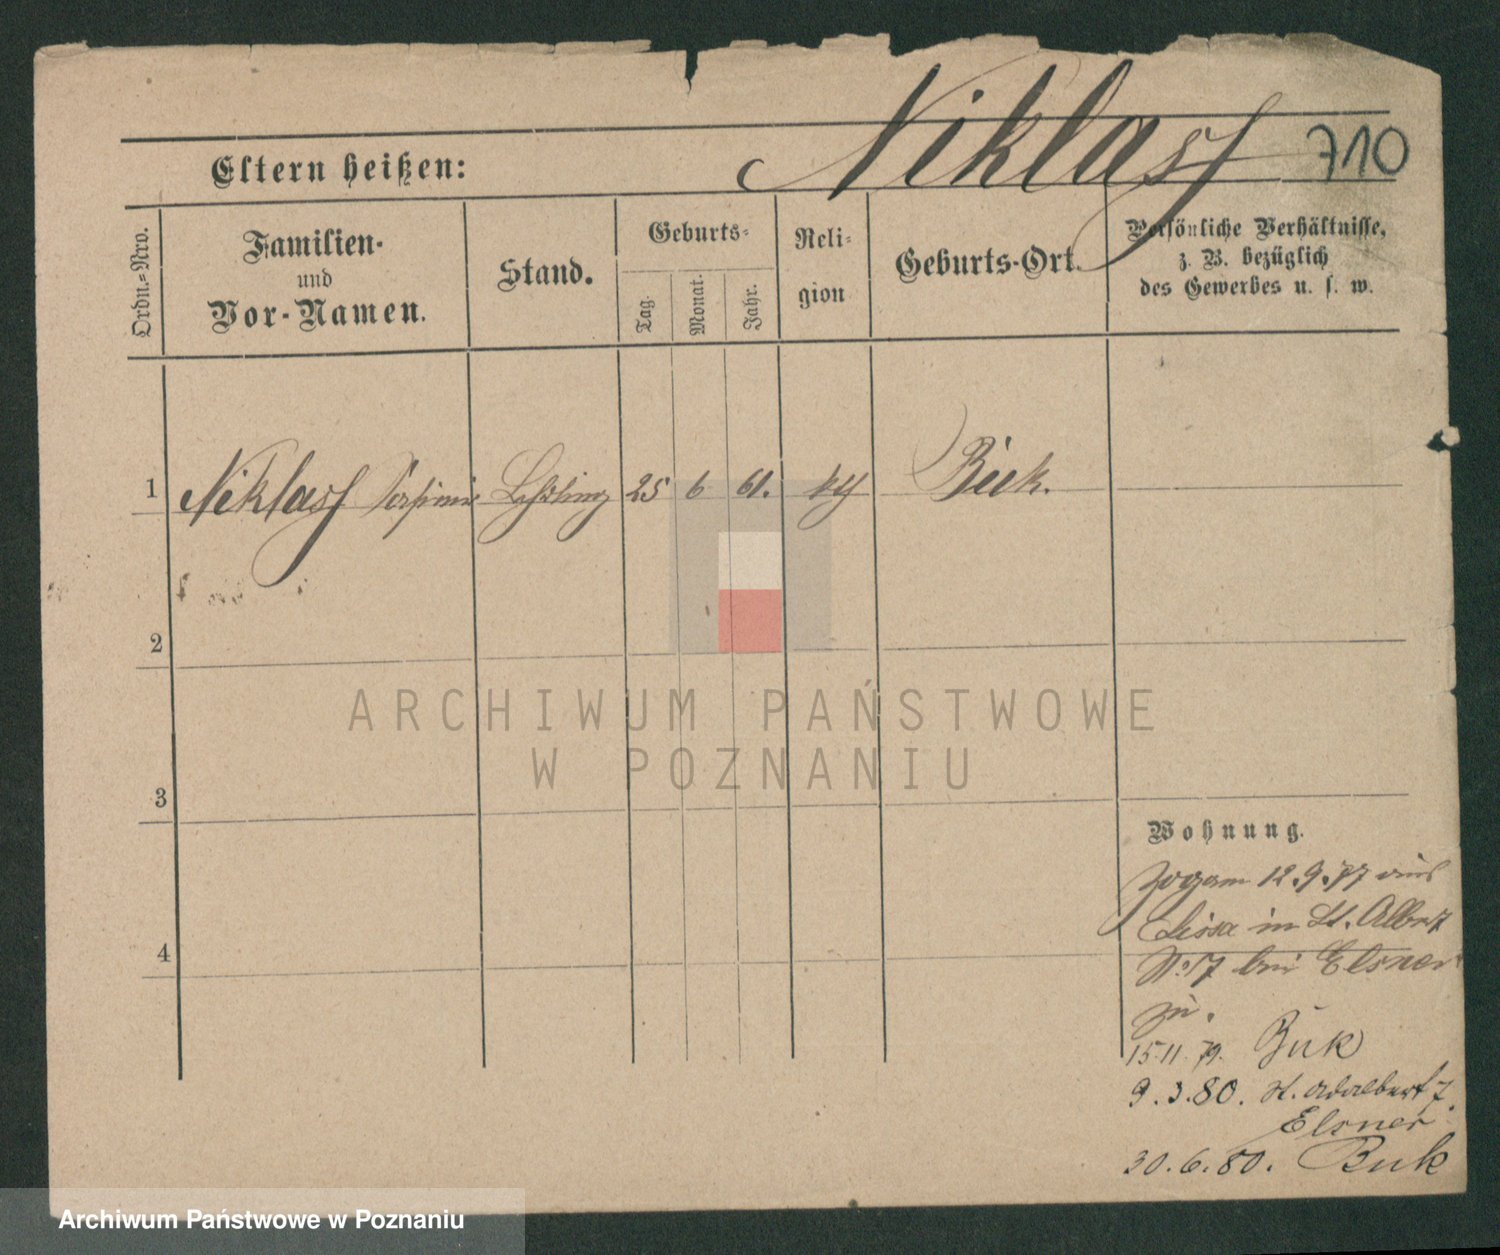 Niklass 710
Eltern heißen:
Ordn.-Nro.
Familien-
und
Vor-Namen.
Stand.
Geburts-
Tag.
Monat.
Jahr.
Reli-
gion
Geburts-Ort.
Persönliche Verhältnisse,
z. B. bezüglich
des Gewerbes u. s. w.
1 Niklass 25 6 61. Buk.
2
3
4
ARCHIWUM PAŃSTWOWE
W POZNANIU
Wohnung.
Zog am 12.9.77 aus
Lissa in St. Albert
No 17 bei Elsner
zu.
15.11.79. Buk
9.3.80. St. Adalbert 7.
Elsner
30.6.80. Buk
Archiwum Państwowe w Poznaniu